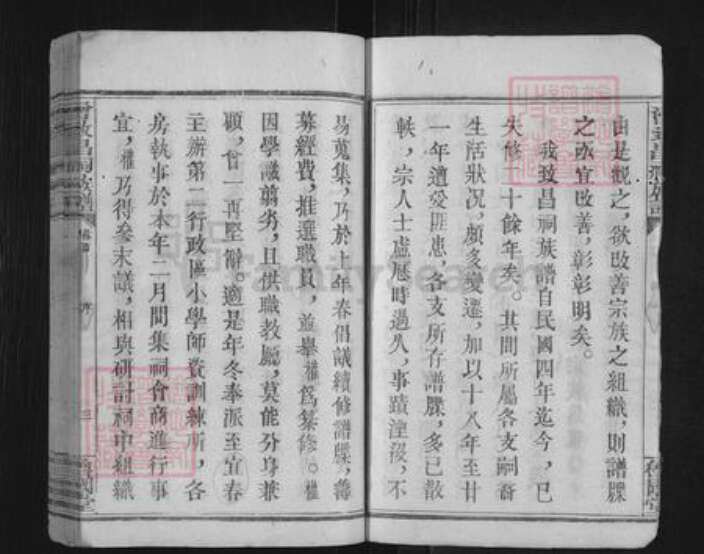 由是觀之,欲改善宗族之組織,則譜牒
之亟宜改善,彰彰明矣。
我致昌祠族譜自民國四年迄今,已
失修二十餘年矣。其間所屬各支嗣裔
生活狀况,頗多變遷,加以十八年至廿
一年遭受匪患,各支所存譜牒,多已散
軼,宗人士慮屢時過久,事蹟湮沒,不
易蒐集,乃於上年春倡議續修譜牒,籌
募經費,推選職員,並舉權爲纂修。權
因學識翦劣,且供職教廳,莫能分身兼
顧,曾一再堅辭。適是年冬奉派至宜春
主辦第二行政區小學師資訓練所,各
房執事於本年二月間集祠會商進行事
宜,權乃得叅末議,相與研討祠中組織
致昌祠族譜
序
三
FamilySearch